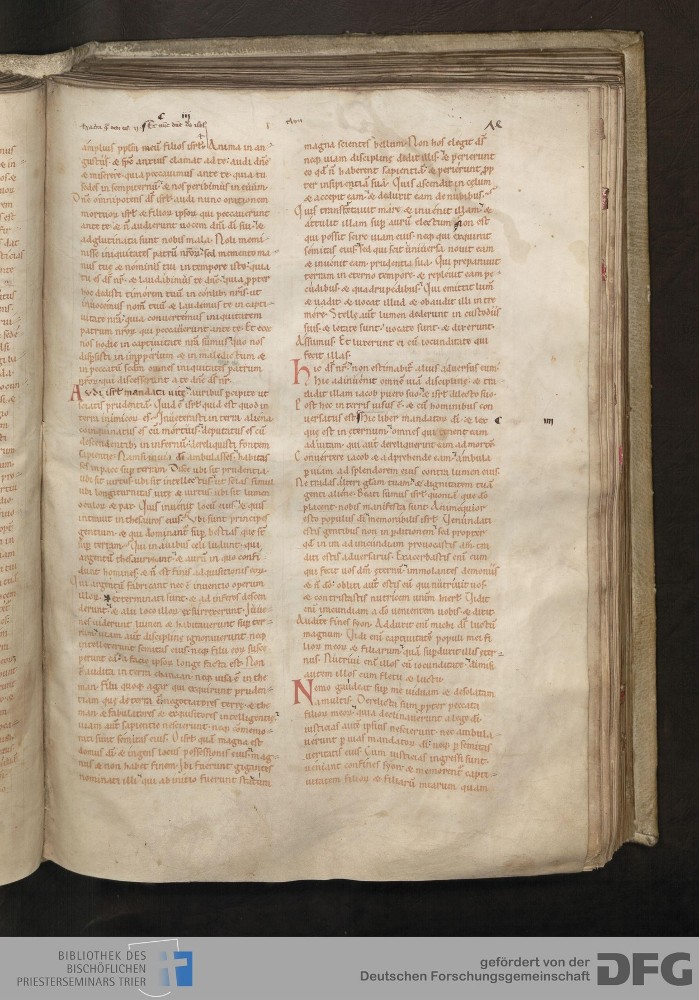 amplius pplm meu filios isrl. Anima in an-
gustiis & sps anxius clamat ad te. audi dne
& miserere quia peccavimus ante te. quia tu
sedes in sempiternu & nos peribimus in evum.
Dne omnipotens ds isrl audi nunc orationem
mortuoru isrl & filioru ipsoru qui peccaverunt
ante te. & n audierunt vocem dni di sui. &
adglutinata sunt nobis mala. Noli memi-
nisse iniquitates patru nroru sed memento ma-
nus tue & nominis tui in tempore isto. quia
tu es ds nr & laudabimus te dne. quia ppter
hoc dedisti timorem tuu in cordib nris. ut
invocemus nom tuu & laudemus te in capti-
vitate nra. quia convertimur ab iniquitatem
patrum nroru qui peccaverunt ante te. Et ecce
nos hodie in captivitate nra sumus quo nos
dispsisti in impperium & in maledictum &
in peccatu scdm omnes iniquitates patrum
nroru qui discesserunt a te dne ds nr.
Audi isrl mandata vite. auribus pcipite ut
sciatis prudentia. Quid e isrl quid est quod in
terra inimicoru es? Inveterasti in terra aliena.
coinquinatus es cu mortuis. deputatus es cu
descendentib in infernu. dereliquisti fontem
sapientie. Nam si in via di ambulasses. habitas
ses in pace sup terram. Disce ubi sit prudentia.
ubi sit virtus. ubi sit intellectus. ut scias simul
ubi longiturnitas vite & victus. ubi sit lumen
oculoru & pax. Quis invenit locu eius & quis
intravit in thesauros eius? Ubi sunt principes
gentium. & qui dominant sup bestias que st
sup terram. Qui in avibus celi ludunt. qui
argentu thesaurizant & auru in quo confi
dunt homines. & n est finis adquisitionis eoru.
Qui argentu fabricant nec e inventio operum
illoru. Exterminati sunt. & ad inferos descen
derunt. & alii loco illoru exsurrexerunt. Juve-
nes viderunt lumen & habitaverunt sup ter-
ram. viam aut discipline ignoraverunt neq
intellexerunt semitas eius. neq filii eoru susce
perunt ea. a facie ipsoru longe facta est. Non
e audita in terra chanaan. neq visa e in the
man. filii quoq agar qui exquirunt pruden-
tiam que de terra e. negotiatores terre & the
man & fabulatores & exquisitores intelligentie.
viam aut sapientie nescierunt. neq comemo-
rati sunt semitas eius. O isrl qua magna est
domus di & ingens locus possessionis eius. mag-
nus & non habet finem. Ibi fuerunt gigantes
nominati illi qui ab initio fuerunt statura
magna scientes bellum. Non hos elegit ds
neq viam discipline dedit illis. & perierunt
eo qd n haberent sapientia. & perierunt pp
ter insipientia sua. Quis ascendit in celum
& accepit eam. & deduxit eam de nubibus.
Quis transfretavit mare & invenit illam. &
attulit illam sup auru electum. Non est
qui possit scire viam eius. neq qui exquirat
semitas eius. sed qui scit universa novit eam
& invenit eam prudentia sua. Qui preparavit
terram in eterno tempore. & replevit eam pe-
cudibus & quadrupedibus. Qui emittit lum
& vadit. & vocat illud & obaudit illi in tre
more. Stelle aut lumen dederunt in custodiis
suis & letate sunt. vocate sunt & dixerunt.
Assumus. Et luxerunt ei cu iocunditate qui
fecit illas.
Hic ds nr. non estimabit alius adversus eum.
Hic adinvenit omne via discipline. & tra
didit illam iacob puero suo & isrl dilecto suo.
Post hec in terris visus e. & cu hominibus con
versatus est. Hic liber mandatoru di. & lex
que est in eternum. omnes qui tenent eam
ad vitam. qui aut dereliquerint eam ad morte.
Convertere iacob & adprehende eam. ambula
p viam ad splendorem eius contra lumen eius.
Ne tradas alteri gliam tuam. & dignitatem tua
genti aliene. Beati sumus isrl. quonia que do
placent nobis manifesta sunt. Animequior
esto populus di memorabilis isrl. Venundati
estis gentibus non in pditionem sed propter
qd in ira ad iracundiam provocastis dm. tra
diti estis adversariis. Exacerbastis eni eum
qui fecit vos dm eternu. immolantes demoniis
& n do. obliti aut estis eu qui nutrivit vos
& contristastis nutricem vram hierlm. Vidit
eni iracundiam a do venientem vobis & dixit.
Audite fines syon. Adduxit eni michi ds luctu
magnum. Vidi eni captivitate populi mei fi
lioru meoru & filiarum qua superduxit illis eter-
nus. Nutrivi eni illos cu iocunditate. dimisi
autem illos cum fletu & luctu.
Nemo gaudeat sup me viduam & desolatam
a multis. Derelicta sum ppter peccata
filioru meoru. quia declinaverunt a lege di.
iusticias aut ipsius nescierunt. nec ambula-
verunt p vias mandatoru di. neq p semitas
veritatis eius cum iusticia ingressi sunt.
veniant confines syon & memorent capti-
vitatem filioru & filiaru mearum quam
BIBLIOTHEK DES
BISCHÖFLICHEN
PRIESTERSEMINARS TRIER
gefördert von der
Deutschen Forschungsgemeinschaft
DFG